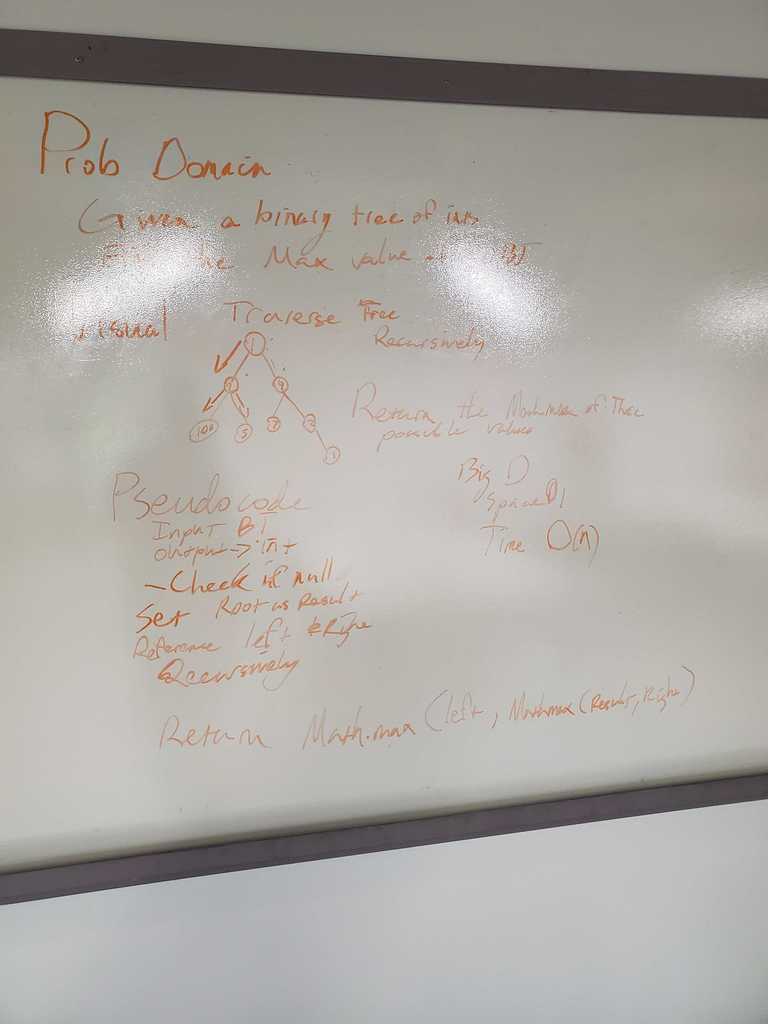 Prob Domain
Given a binary tree of ints
the Max value
Visual
Traverse Tree
Recursively
1
100 5
Return the Math.max of Three
possible values
Big O
Space O 1
Time O(n)
Pseudocode
Input BT
output -> int
- Check if null
Set Root as Result
Reference left & Right
Recursively
Return Math.max (left, Mathmax (Result, Right)